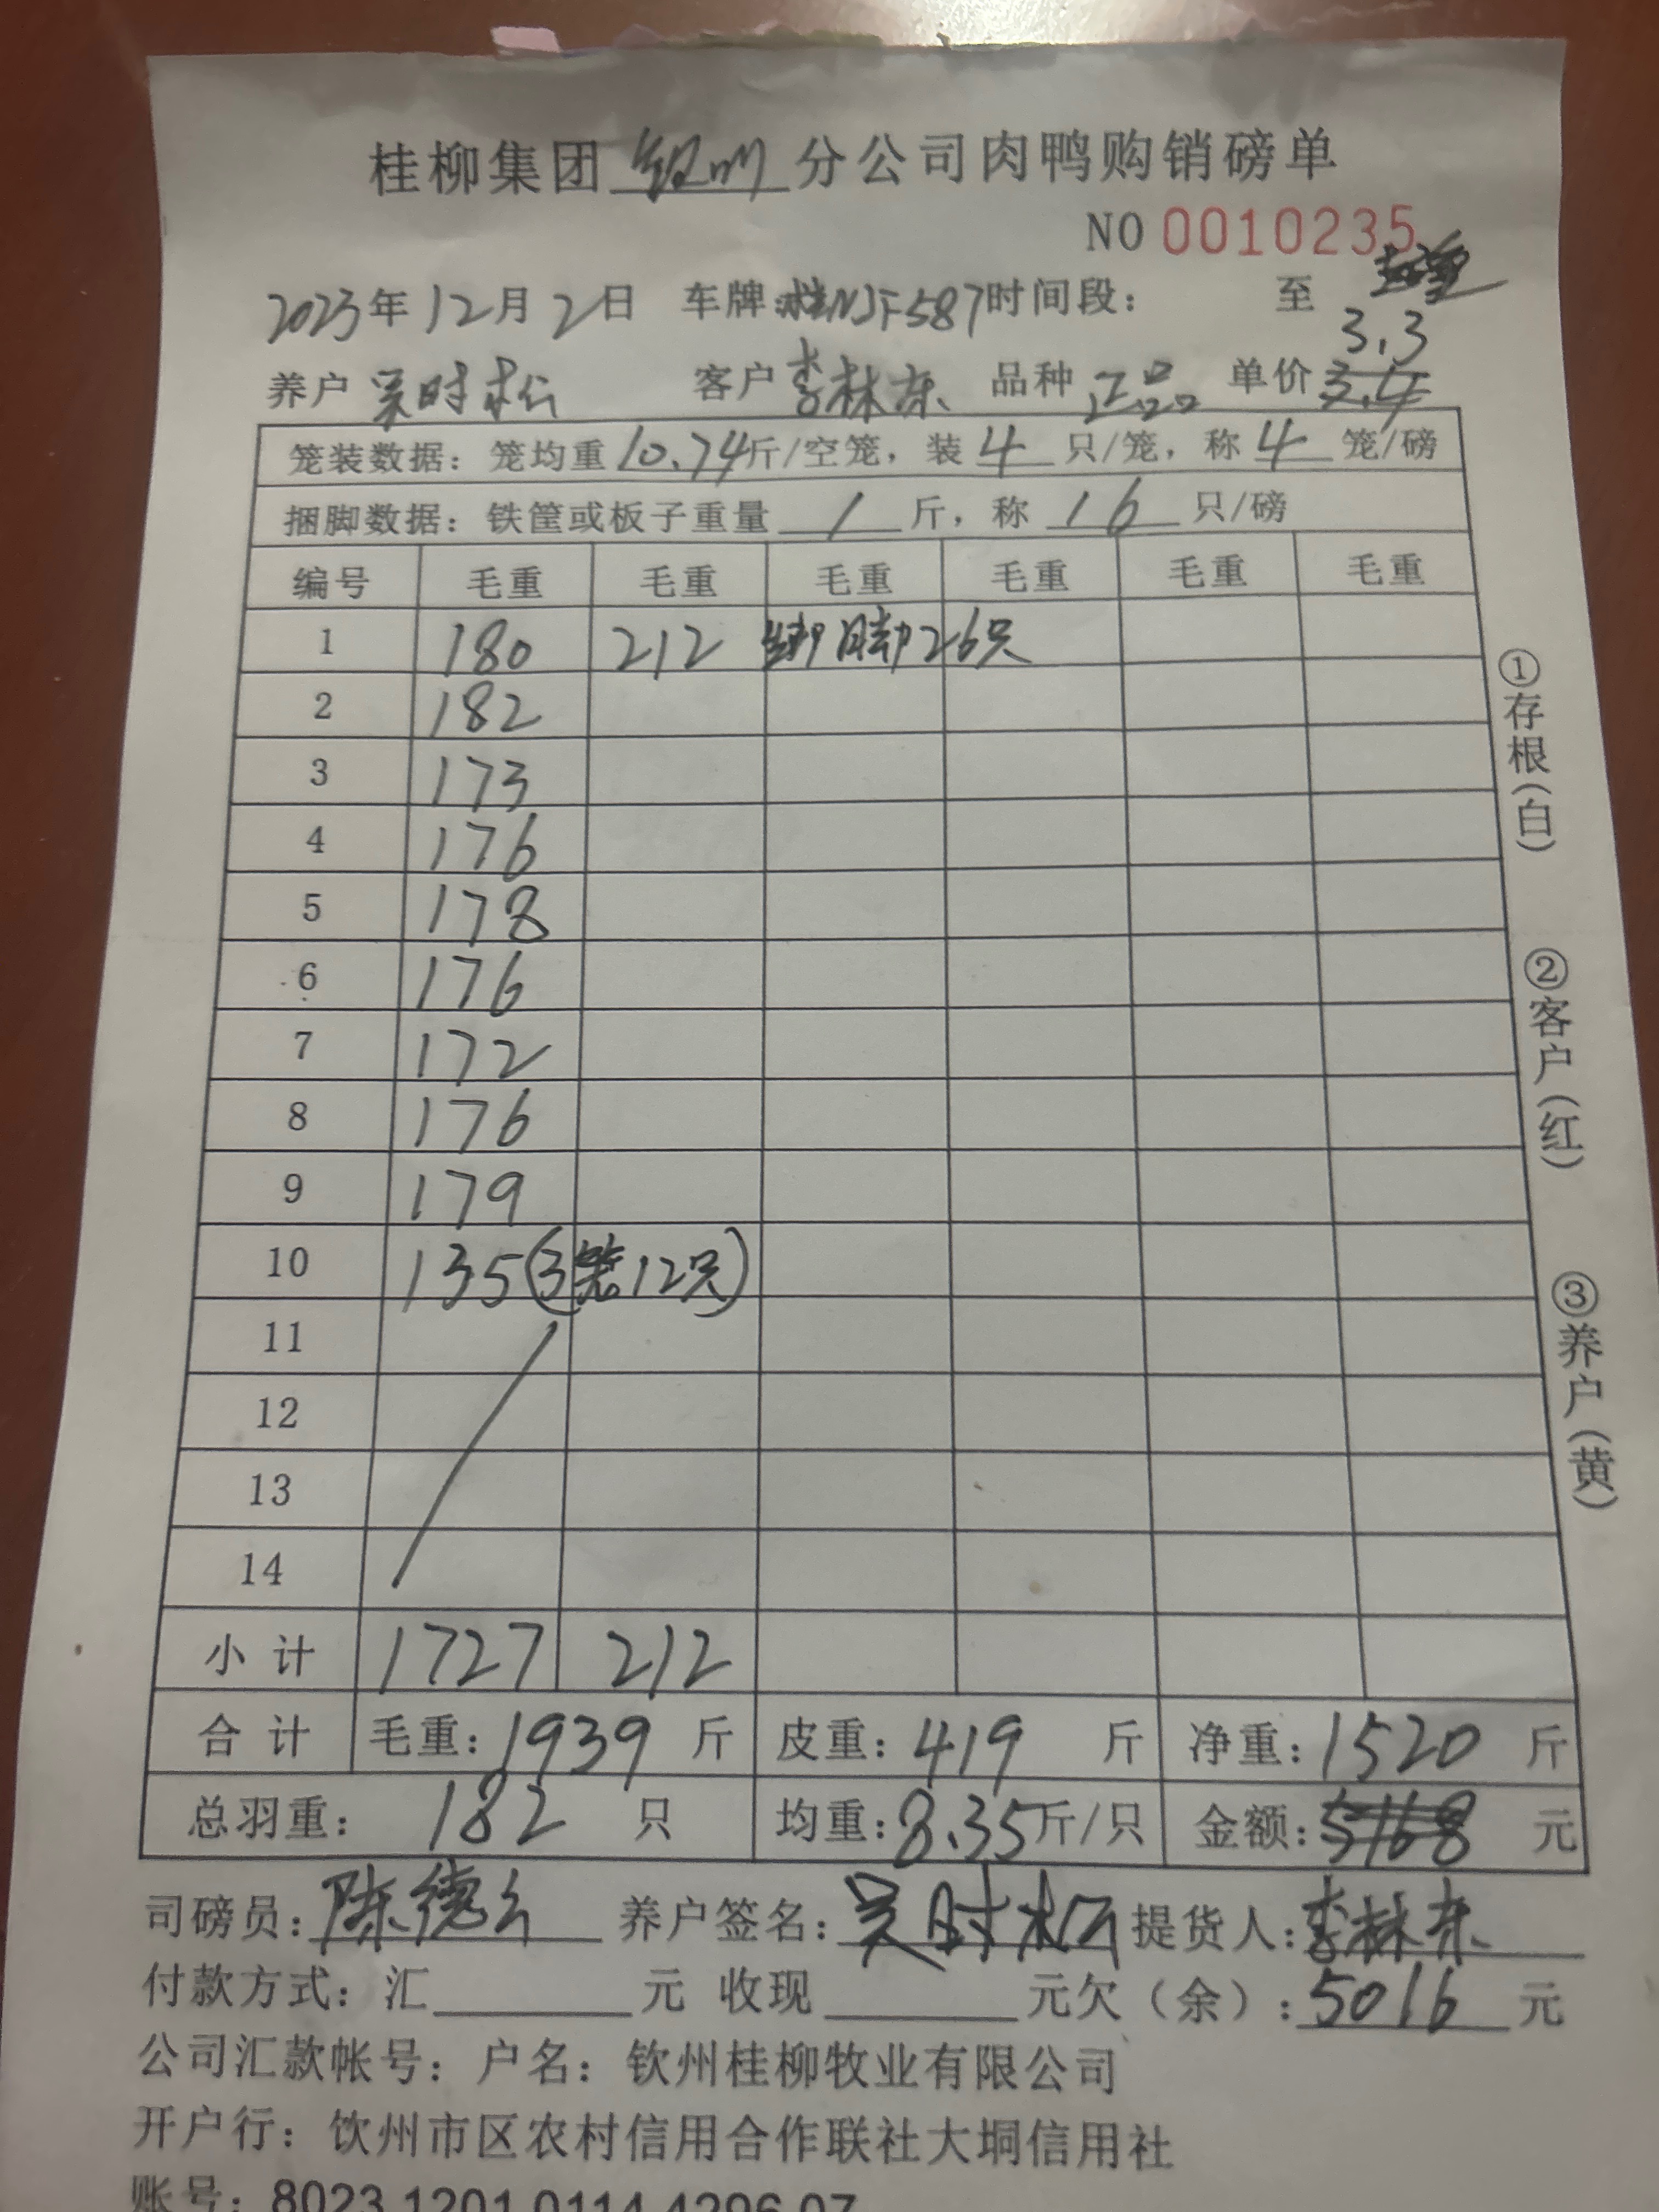 桂柳集团 钦州 分公司肉鸭购销磅单
NO 0010235
2023年12月2日 车牌:桂NJF587 时间段: 至
3.3
养户 吴时松 客户 李林东 品种 正品 单价 3.4
笼装数据：笼均重10.74斤/空笼，装 4 只/笼，称 4 笼/磅
捆脚数据：铁筐或板子重量 / 斤，称 16 只/磅
编号 毛重 毛重 毛重 毛重 毛重 毛重
1 180 212 绑脚26只
2 182
3 173
4 176
5 178
6 176
7 172
8 176
9 179
10 135(3笼12只)
11
12
13
14
小计 1727 212
合计 毛重：1939 斤 皮重：419 斤 净重：1520 斤
总羽重： 182 只 均重：8.35斤/只 金额：5168 元
司磅员：陈德 养户签名：吴时松 提货人：李林东
付款方式：汇 元 收现 元欠（余）：5016 元
公司汇款帐号：户名：钦州桂柳牧业有限公司
开户行：钦州市区农村信用合作联社大垌信用社
账号：8023 1201 0114 4296 07
①存根（白）
②客户（红）
③养户（黄）